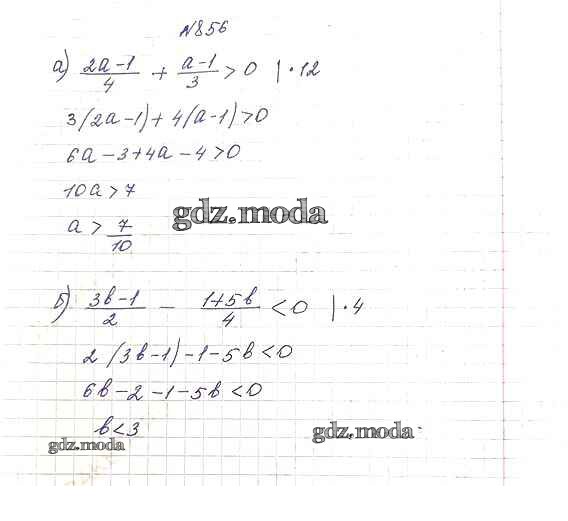 №856
а) (2a-1)/4 + (a-1)/3 > 0 | · 12
3(2a-1) + 4(a-1) > 0
6a - 3 + 4a - 4 > 0
10a > 7
a > 7/10
gdz.moda
б) (3b-1)/2 - (1+5b)/4 < 0 | · 4
2(3b-1) - 1 - 5b < 0
6b - 2 - 1 - 5b < 0
b < 3
gdz.moda
gdz.moda